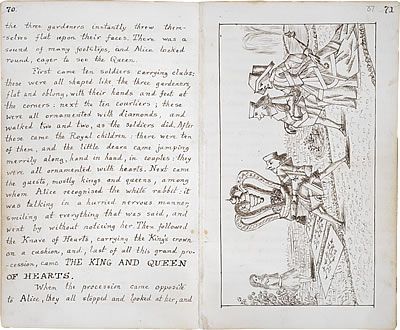 70.
the three gardeners instantly threw them-
selves flat upon their faces. There was a
sound of many footsteps, and Alice looked
round, eager to see the Queen.
First came ten soldiers carrying clubs:
these were all shaped like the three gardeners,
flat and oblong, with their hands and feet at
the corners: next the ten courtiers; these
were all ornamented with diamonds, and
walked two and two, as the soldiers did. After
these came the Royal children: there were ten
of them, and the little dears came jumping
merrily along, hand in hand, in couples: they
were all ornamented with hearts. Next came
the guests, mostly kings and queens, among
whom Alice recognised the white rabbit: it
was talking in a hurried nervous manner,
smiling at everything that was said, and
went by without noticing her. Then followed
the Knave of Hearts, carrying the King's crown
on a cushion, and, last of all this grand pro-
-cession, came THE KING AND QUEEN
OF HEARTS.
When the procession came opposite
to Alice, they all stopped and looked at her, and
37 71